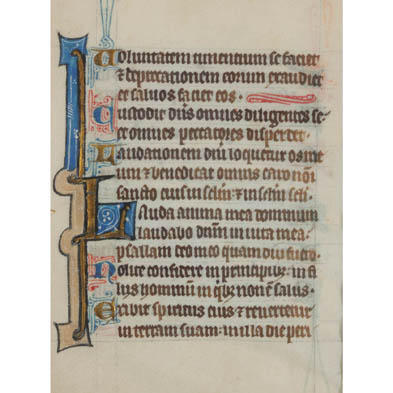 Voluntatem timentium se faciet
& deprecationem eorum exaudiet
et saluos faciet eos.
Custodit dn̄s omnes diligentes se
et omnes peccatores disperdet.
Laudationem dn̄i loquetur os me
um & benedicat omnis caro noī
sancto eius in sclm̄ & in sclm̄ scli.
Lauda anima mea dominum
laudabo dn̄m in uita mea
psallam deo meo quam diu fuero.
Nolite confidere in principibꝫ: in fi
lijs hominū in qͥbꝫ non ē salus.
Exibit spiritus eius & reuertetur
in terram suam: in illa die peri